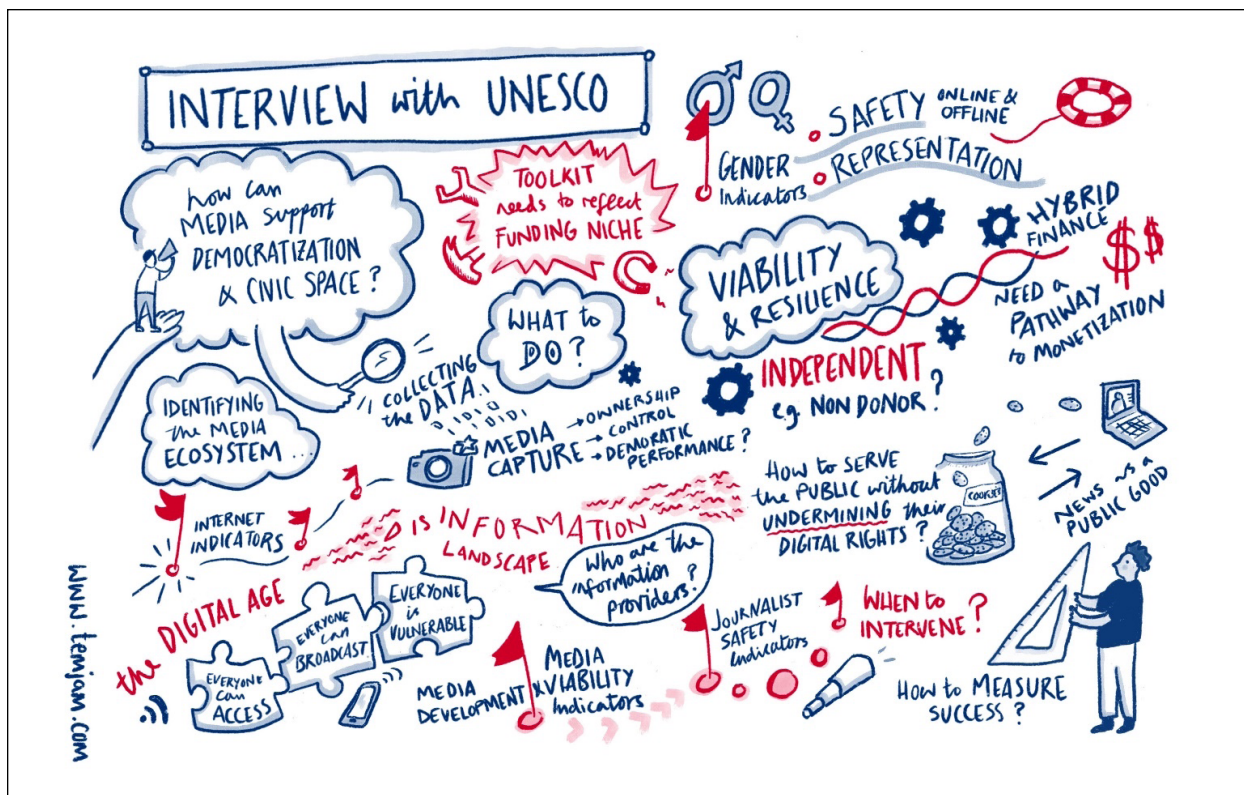 INTERVIEW with UNESCO
how can
MEDIA support
DEMOCRATIZATION
& CIVIC SPACE?
TOOLKIT
needs to reflect
FUNDING NICHE
GENDER
Indicators
SAFETY ONLINE &
OFFLINE
REPRESENTATION
HYBRID
FINANCE
$$
VIABILITY
& RESILIENCE
NEED A
PATHWAY
to MONETIZATION
WHAT to
DO?
INDEPENDENT
e.g. NON DONOR?
IDENTIFYING
the MEDIA
ECOSYSTEM...
COLLECTING
the DATA...
MEDIA
CAPTURE
→ OWNERSHIP
→ CONTROL
→ DEMORATIC
PERFORMANCE?
HOW to SERVE
the PUBLIC without
UNDERMINING their
DIGITAL RIGHTS?
COOKIES
NEWS as a
PUBLIC GOOD
INTERNET
INDICATORS
DISINFORMATION
LANDSCAPE
Who are the
information
providers?
the DIGITAL AGE
EVERYONE
can
ACCESS
EVERYONE
can
BROADCAST
EVERYONE
is
VULNERABLE
MEDIA
DEVELOPMENT
&
MEDIA
VIABILITY
Indicators
JOURNALIST
SAFETY
Indicators
WHEN to
INTERVENE?
HOW to MEASURE
SUCCESS?
www.temjam.com